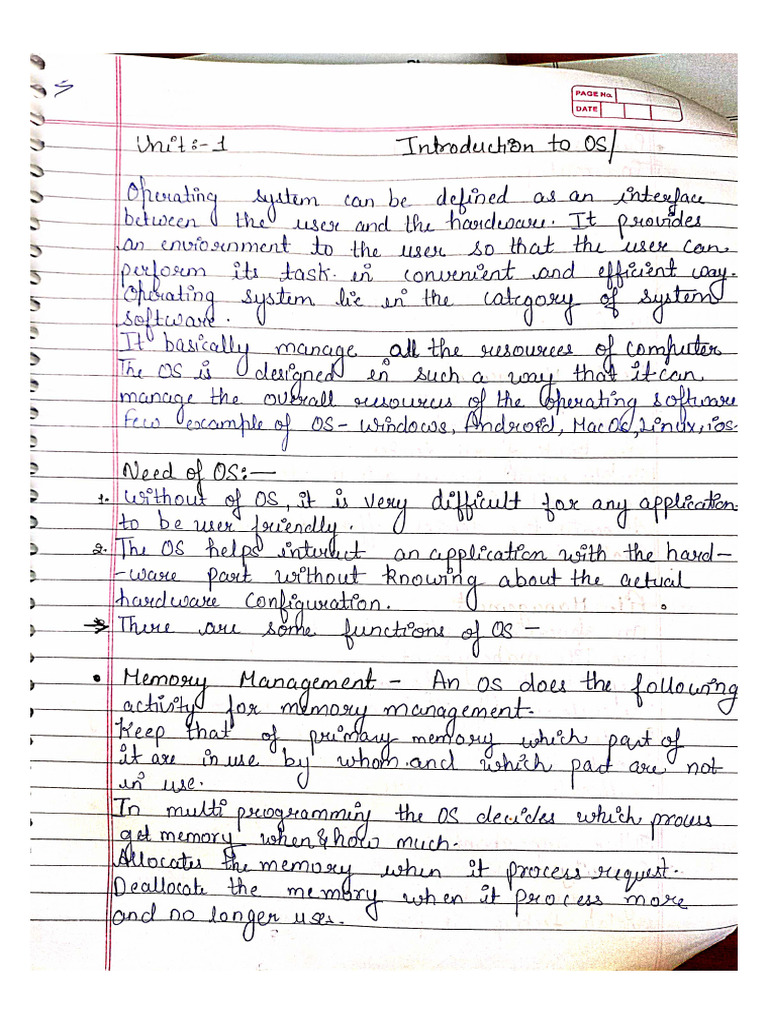 PAGE No.
DATE
Unit:-1 Introduction to OS/
Operating system can be defined as an interface
between the user and the hardware. It provides
an enviornment to the user so that the user can
perform its task in convenient and efficient way.
Operating system lie in the category of system
software.
It basically manage all the resources of computer
The OS is designed in such a way that it can
manage the overall resources of the operating software
Few example of OS- Windows, Android, MacOS, Linux, ios.
Need of OS:—
1. Without of OS, it is very difficult for any application
to be user friendly.
2. The OS helps interact an application with the hard-
-ware part without knowing about the actual
hardware configuration.
→ There are some functions of OS -
• Memory Management - An OS does the following
activity for memory management.
Keep that of primary memory which part of
it are in use by whom and which part are not
in use.
In multi programming the OS decides which process
get memory when & how much.
Allocates the memory when it process request.
Deallocate the memory when it process more
and no longer uses.